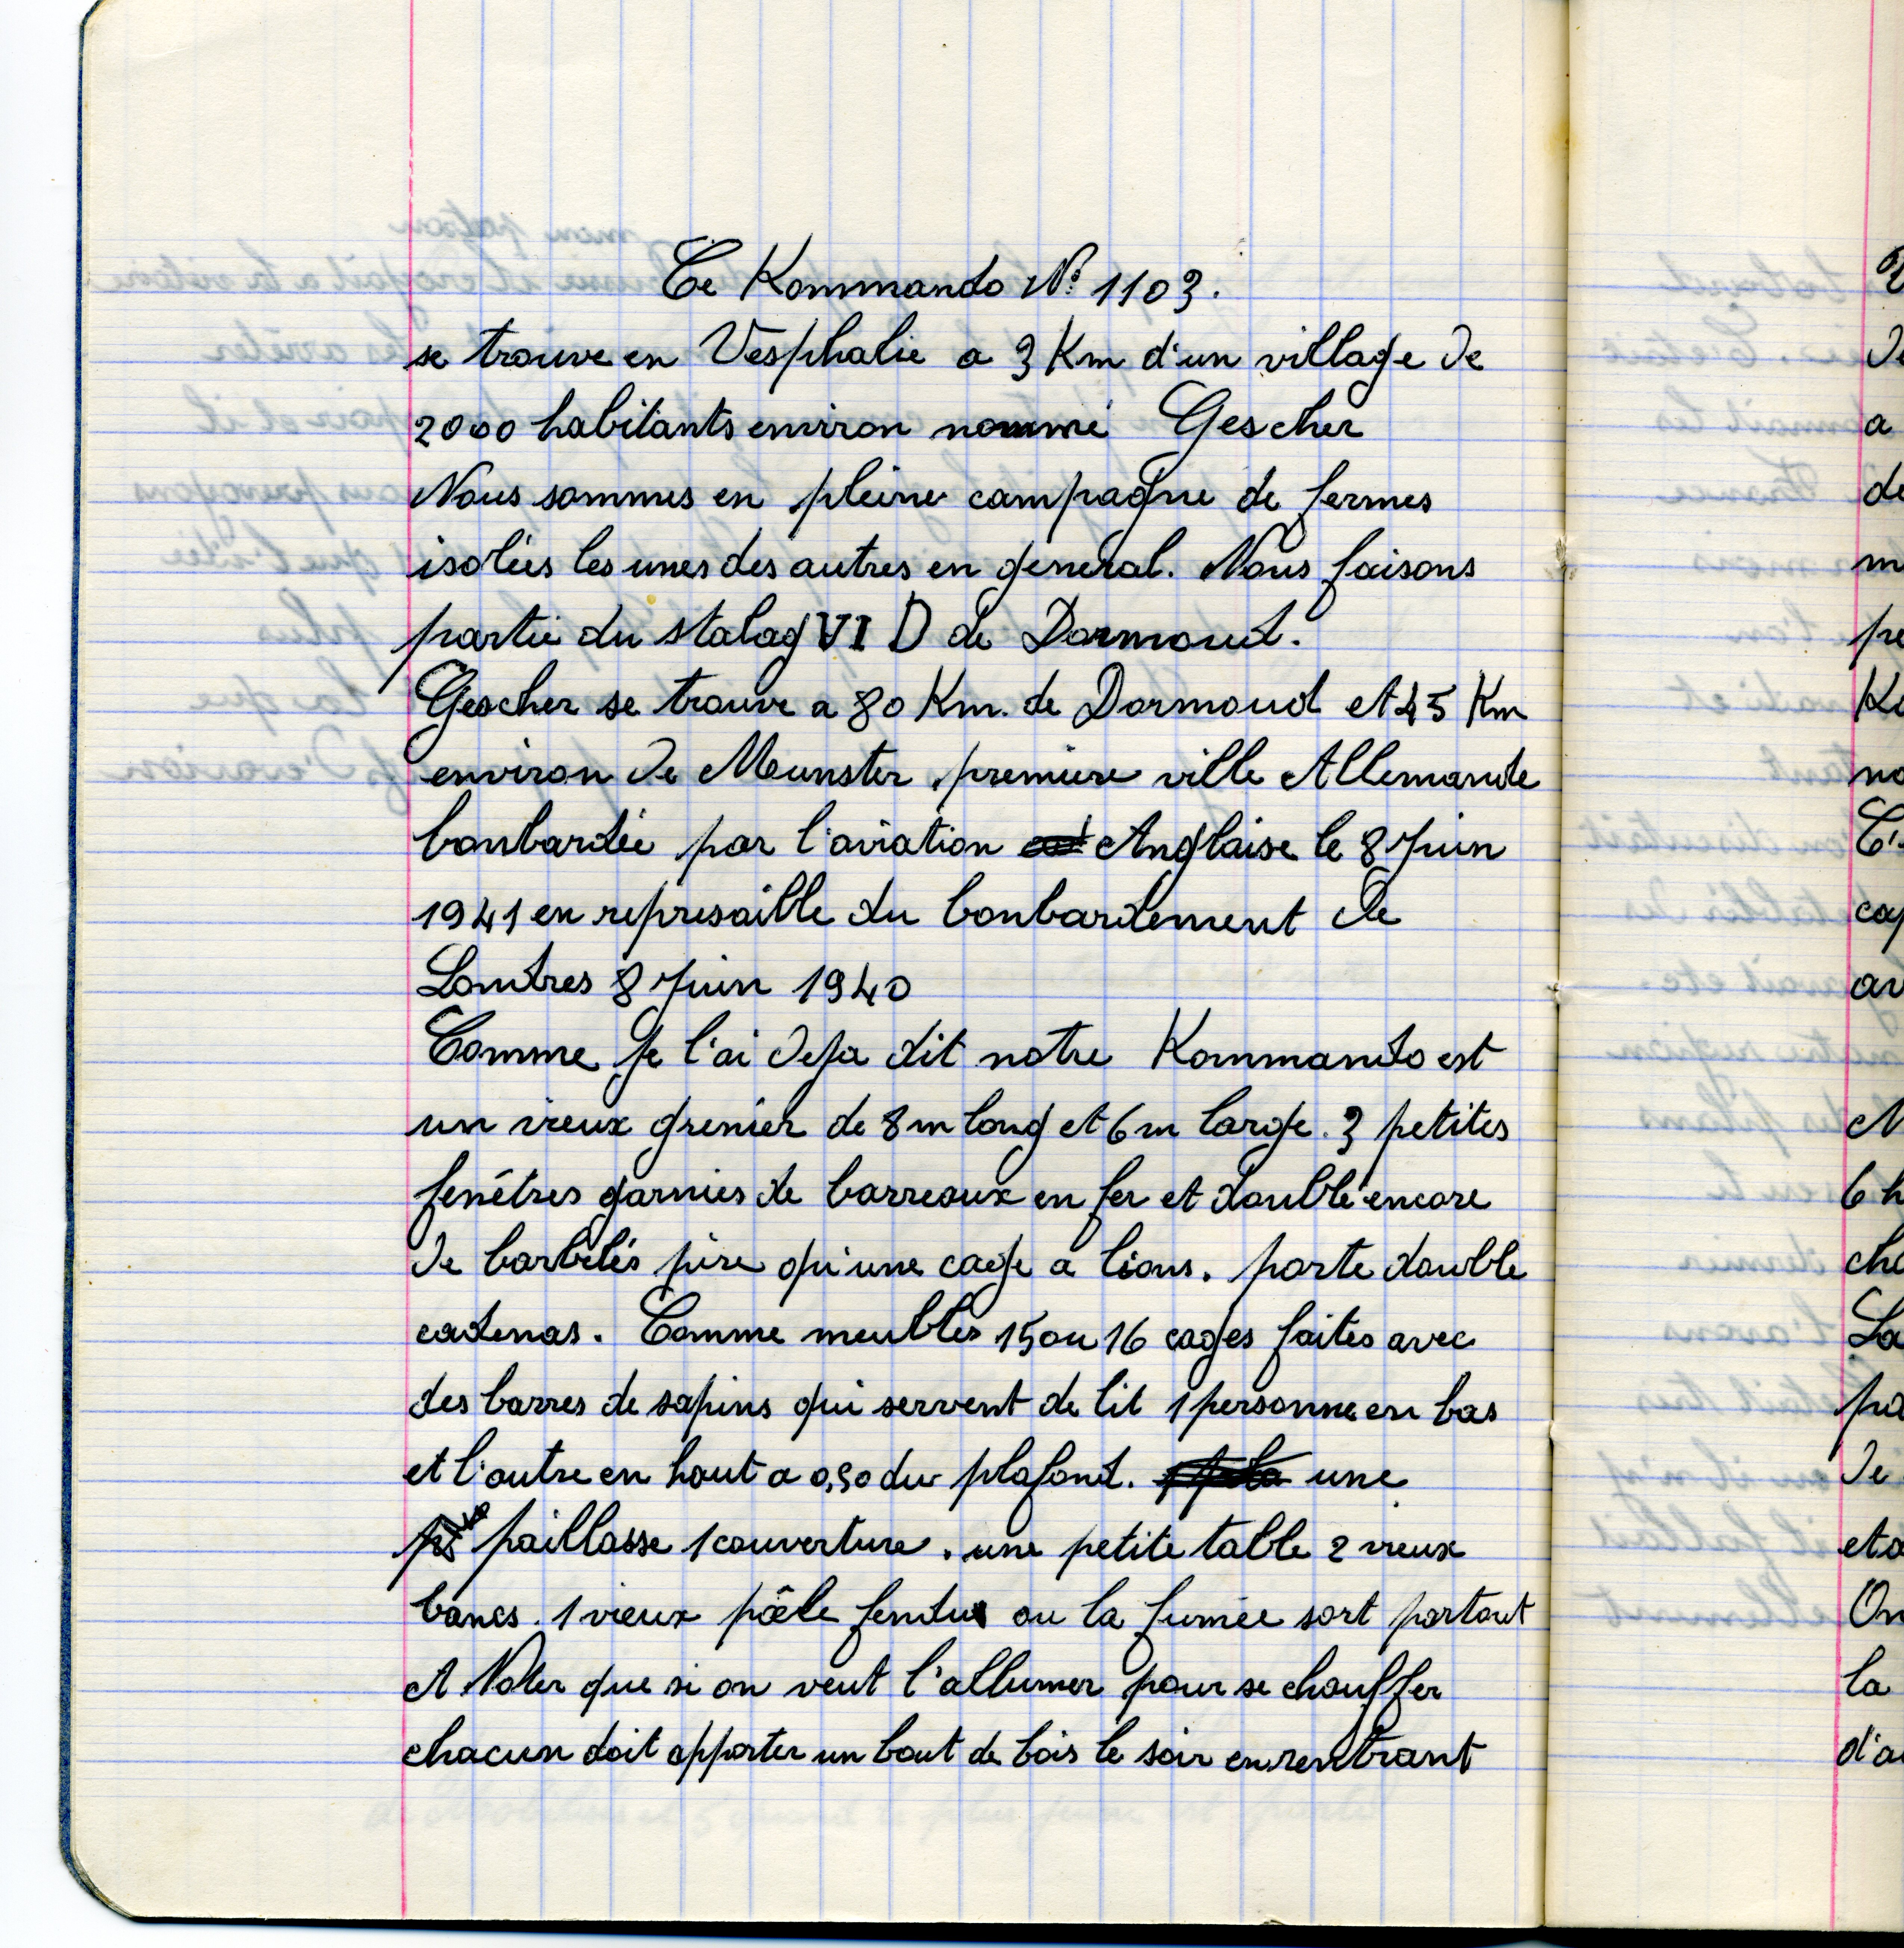 Ce Kommando N° 1103.
se trouve en Vesphalie a 3 Km d'un village de
2000 habitants environ nommé Gescher
Nous sommes en pleine campagne de fermes
isolées les unes des autres en general. Nous faisons
partie du stalag VI D de Dormoud.
Gescher se trouve a 80 Km. de Dormoud et 45 Km
environ de Meunster, premiere ville Allemande
bonbardée par l'aviation Anglaise le 8 Juin
1941 en represaille du bonbardement de
Londres 8 Juin 1940
Comme je l'ai deja dit notre Kommando est
un vieux grenier de 8m long et 6m large. 3 petites
fenêtres garnies de barreaux en fer et doublé encore
de barbelés pire qu'une cage a lions. porte double
cadenas. Comme meubles 15 ou 16 cages faites avec
des barres de sapins qui servent de lit 1 personne en bas
et l'autre en haut a 0,50 du plafond. une
paillasse 1 couverture. une petite table 2 vieux
bancs. 1 vieux poêle fendu ou la fumée sort partout
A Noter que si on veut l'allumer pour se chauffer
chacun doit apporter un bout de bois le soir en rentrant